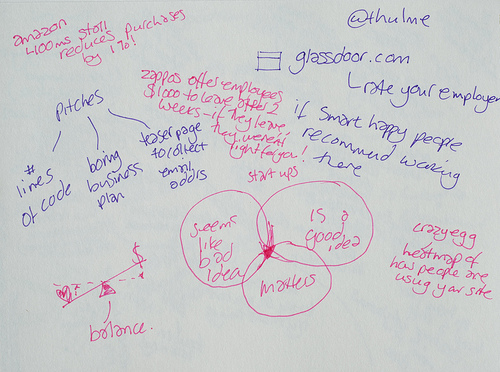 amazon
400ms stall
reduces purchases
by 1%!
@thulme
glassdoor.com
rate your employer
zappos offer employees
$1000 to leave after 2
weeks - if they leave
they weren't
right for you!
if smart happy people
recommend working
there
Pitches
# lines of code
boring
business
plan
teaser page
to collect
email
addrs
start ups
seems
like
bad
idea
is a
good
idea
matters
crazyegg
heatmap of
how people are
using your site
$
balance.